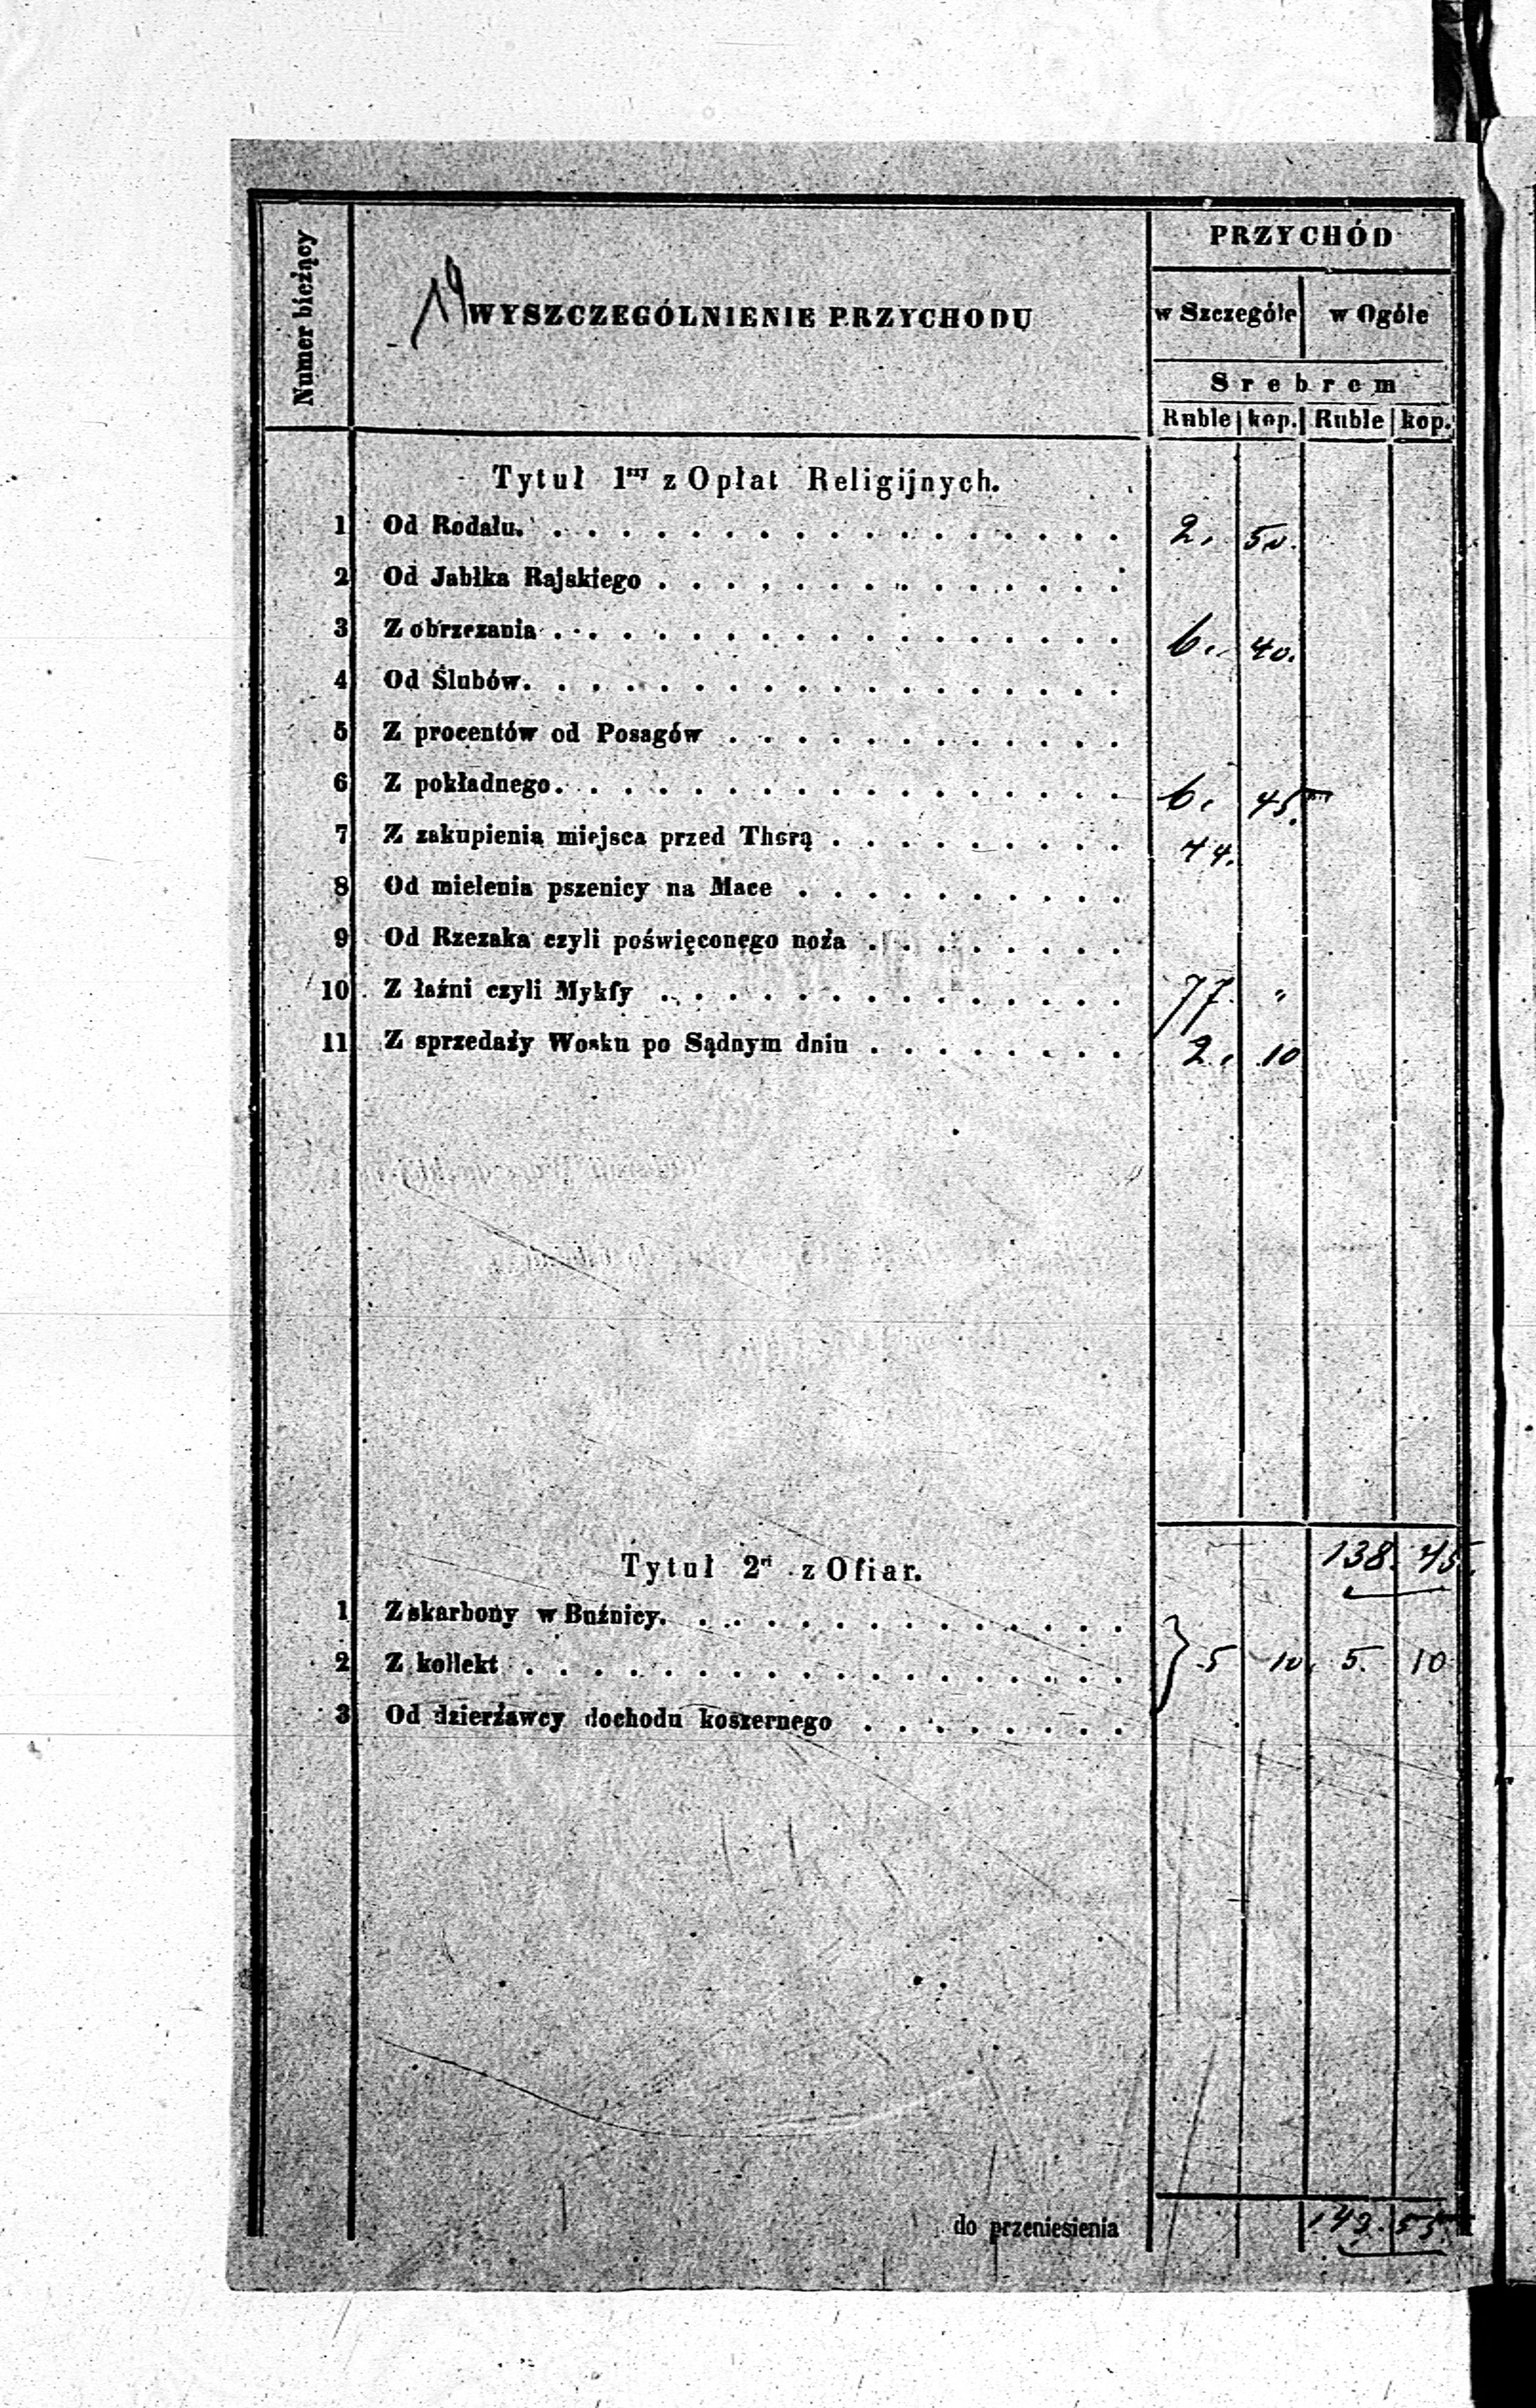 19
Numer bieżący
WYSZCZEGÓLNIENIE PRZYCHODU
PRZYCHÓD
w Szczególe w Ogóle
Srebrem
Ruble kop. Ruble kop.
Tytuł 1ny z Opłat Religijnych.
1 Od Rodału. 2. 50.
2 Od Jabłka Rajskiego
3 Z obrzezania 6. 40.
4 Od Ślubów.
5 Z procentów od Posagów
6 Z pokładnego. 6. 45.
7 Z zakupienia miejsca przed Thorą 44.
8 Od mielenia pszenicy na Mace
9 Od Rzezaka czyli poświęconego noża
10 Z łaźni czyli Mykfy 77. "
11 Z sprzedaży Wosku po Sądnym dniu 2. 10
138. 45.
Tytuł 2gi z Ofiar.
1 Z skarbony w Bużnicy.
2 Z kollekt } 5 10. 5. 10
3 Od dzierżawcy dochodu koszernego
do przeniesienia 143. 55